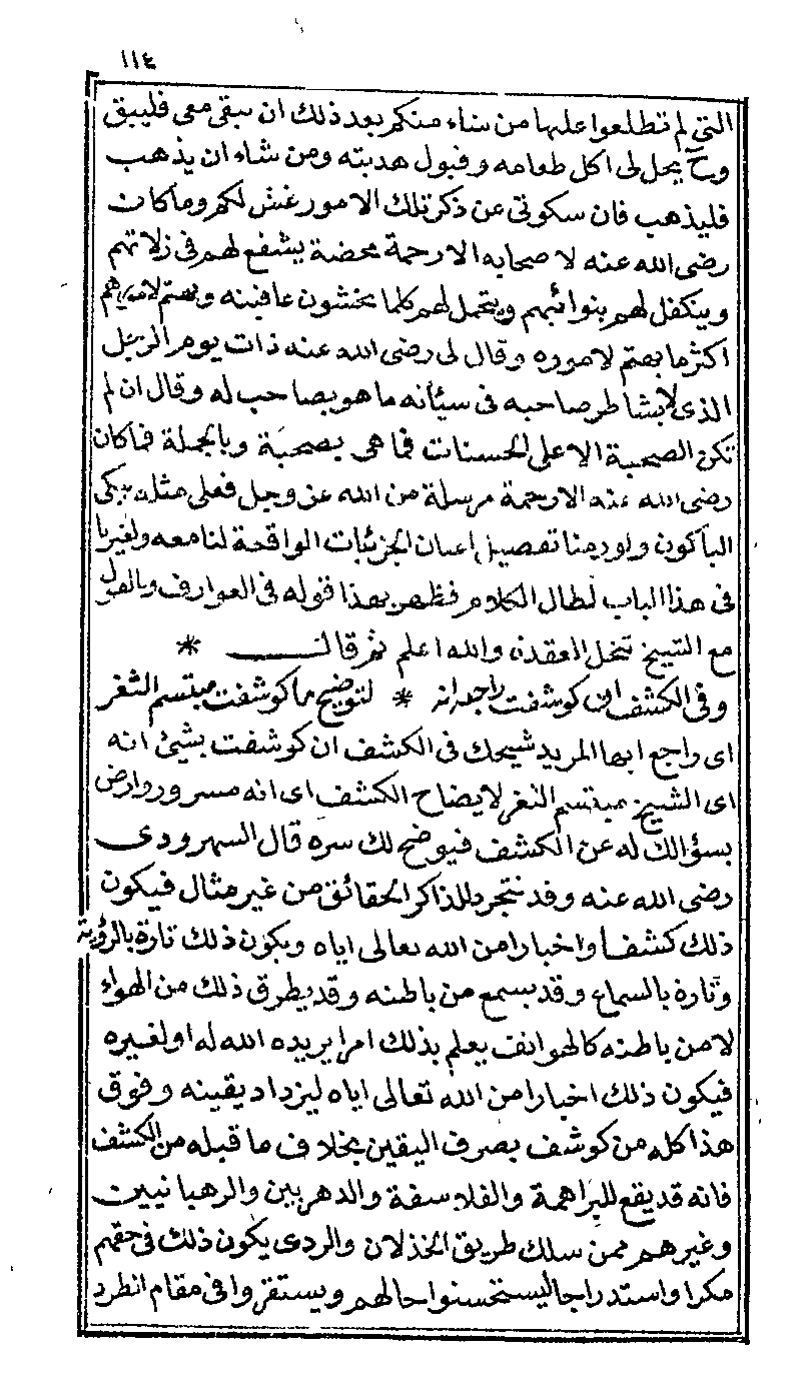 ١١٤
التي لم تطلعوا عليها من شاء منكم بعد ذلك ان يبقى معي فليبق
وح يحل لى اكل طعامه وقبول هديته ومن شاء ان يذهب
فليذهب فان سكوتي عن ذكر تلك الامور غش لكم وما كان
رضى الله عنه لاصحابه الا رحمة محضة يشفع لهم فى زلاتهم
ويتكفل لهم بنوائبهم ويتحمل لهم كلما يخشون عاقبته ويهتم لامورهم
اكثر ما يهتم لاموره وقال لى رضى الله عنه ذات يوم الرجل
الذى لا يشاطر صاحبه فى سيئاته ما هو بصاحب له وقال ان لم
تكن الصحبة الا على الحسنات فما هى بصحبة وبالجملة فما كان
رضى الله عنه الا رحمة مرسلة من الله عز وجل فعلى مثله يبكى
الباكون ولو رمنا تفصيل اعيان الجزئيات الواقعة لنا معه ولغيرنا
فى هذا الباب لطال الكلام فظهر بهذا قوله فى العوارف وبالقول
مع الشيخ تنحل العقدة والله اعلم ثم قال *
وفى الكشف ان كوشفت راجعه انه * لتوضيح ما كوشفت مبتسم الثغر
اى راجع ايها المريد شيخك فى الكشف ان كوشفت بشئ انه
اى الشيخ مبتسم الثغر لايضاح الكشف اى انه مسرور وارض
بسؤالك له عن الكشف فيوضح لك سره قال السهرودى
رضى الله عنه وقد تتجرد للذاكر الحقائق من غير مثال فيكون
ذلك كشفا واخبارا من الله تعالى اياه ويكون ذلك تارة بالرؤية
وتارة بالسماع وقد يسمع من باطنه وقد يطرق ذلك من الهواء
لا من باطنه كالهواتف يعلم بذلك امرا يريده الله له او لغيره
فيكون ذلك اخبارا من الله تعالى اياه ليزداد يقينه وفوق
هذا كله من كوشف بصرف اليقين بخلاف ما قبله من الكشف
فانه قد يقع للبراهمة والفلاسفة والدهريين والرهبانيين
وغيرهم ممن سلك طريق الخذلان والردى يكون ذلك فى حقهم
مكرا واستدراجا ليستحسنوا حالهم ويستقروا فى مقام انطرد